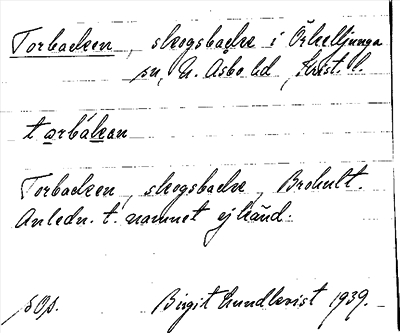 Torbacken, skogsbacke i Örkelljunga
sn, N. Åsbo hd, Krist. l.
t arbákan
Torbacken, skogsbacke, Brohult.
Anledn. t. namnet ej känd.
Birgit Lundkvist 1939.